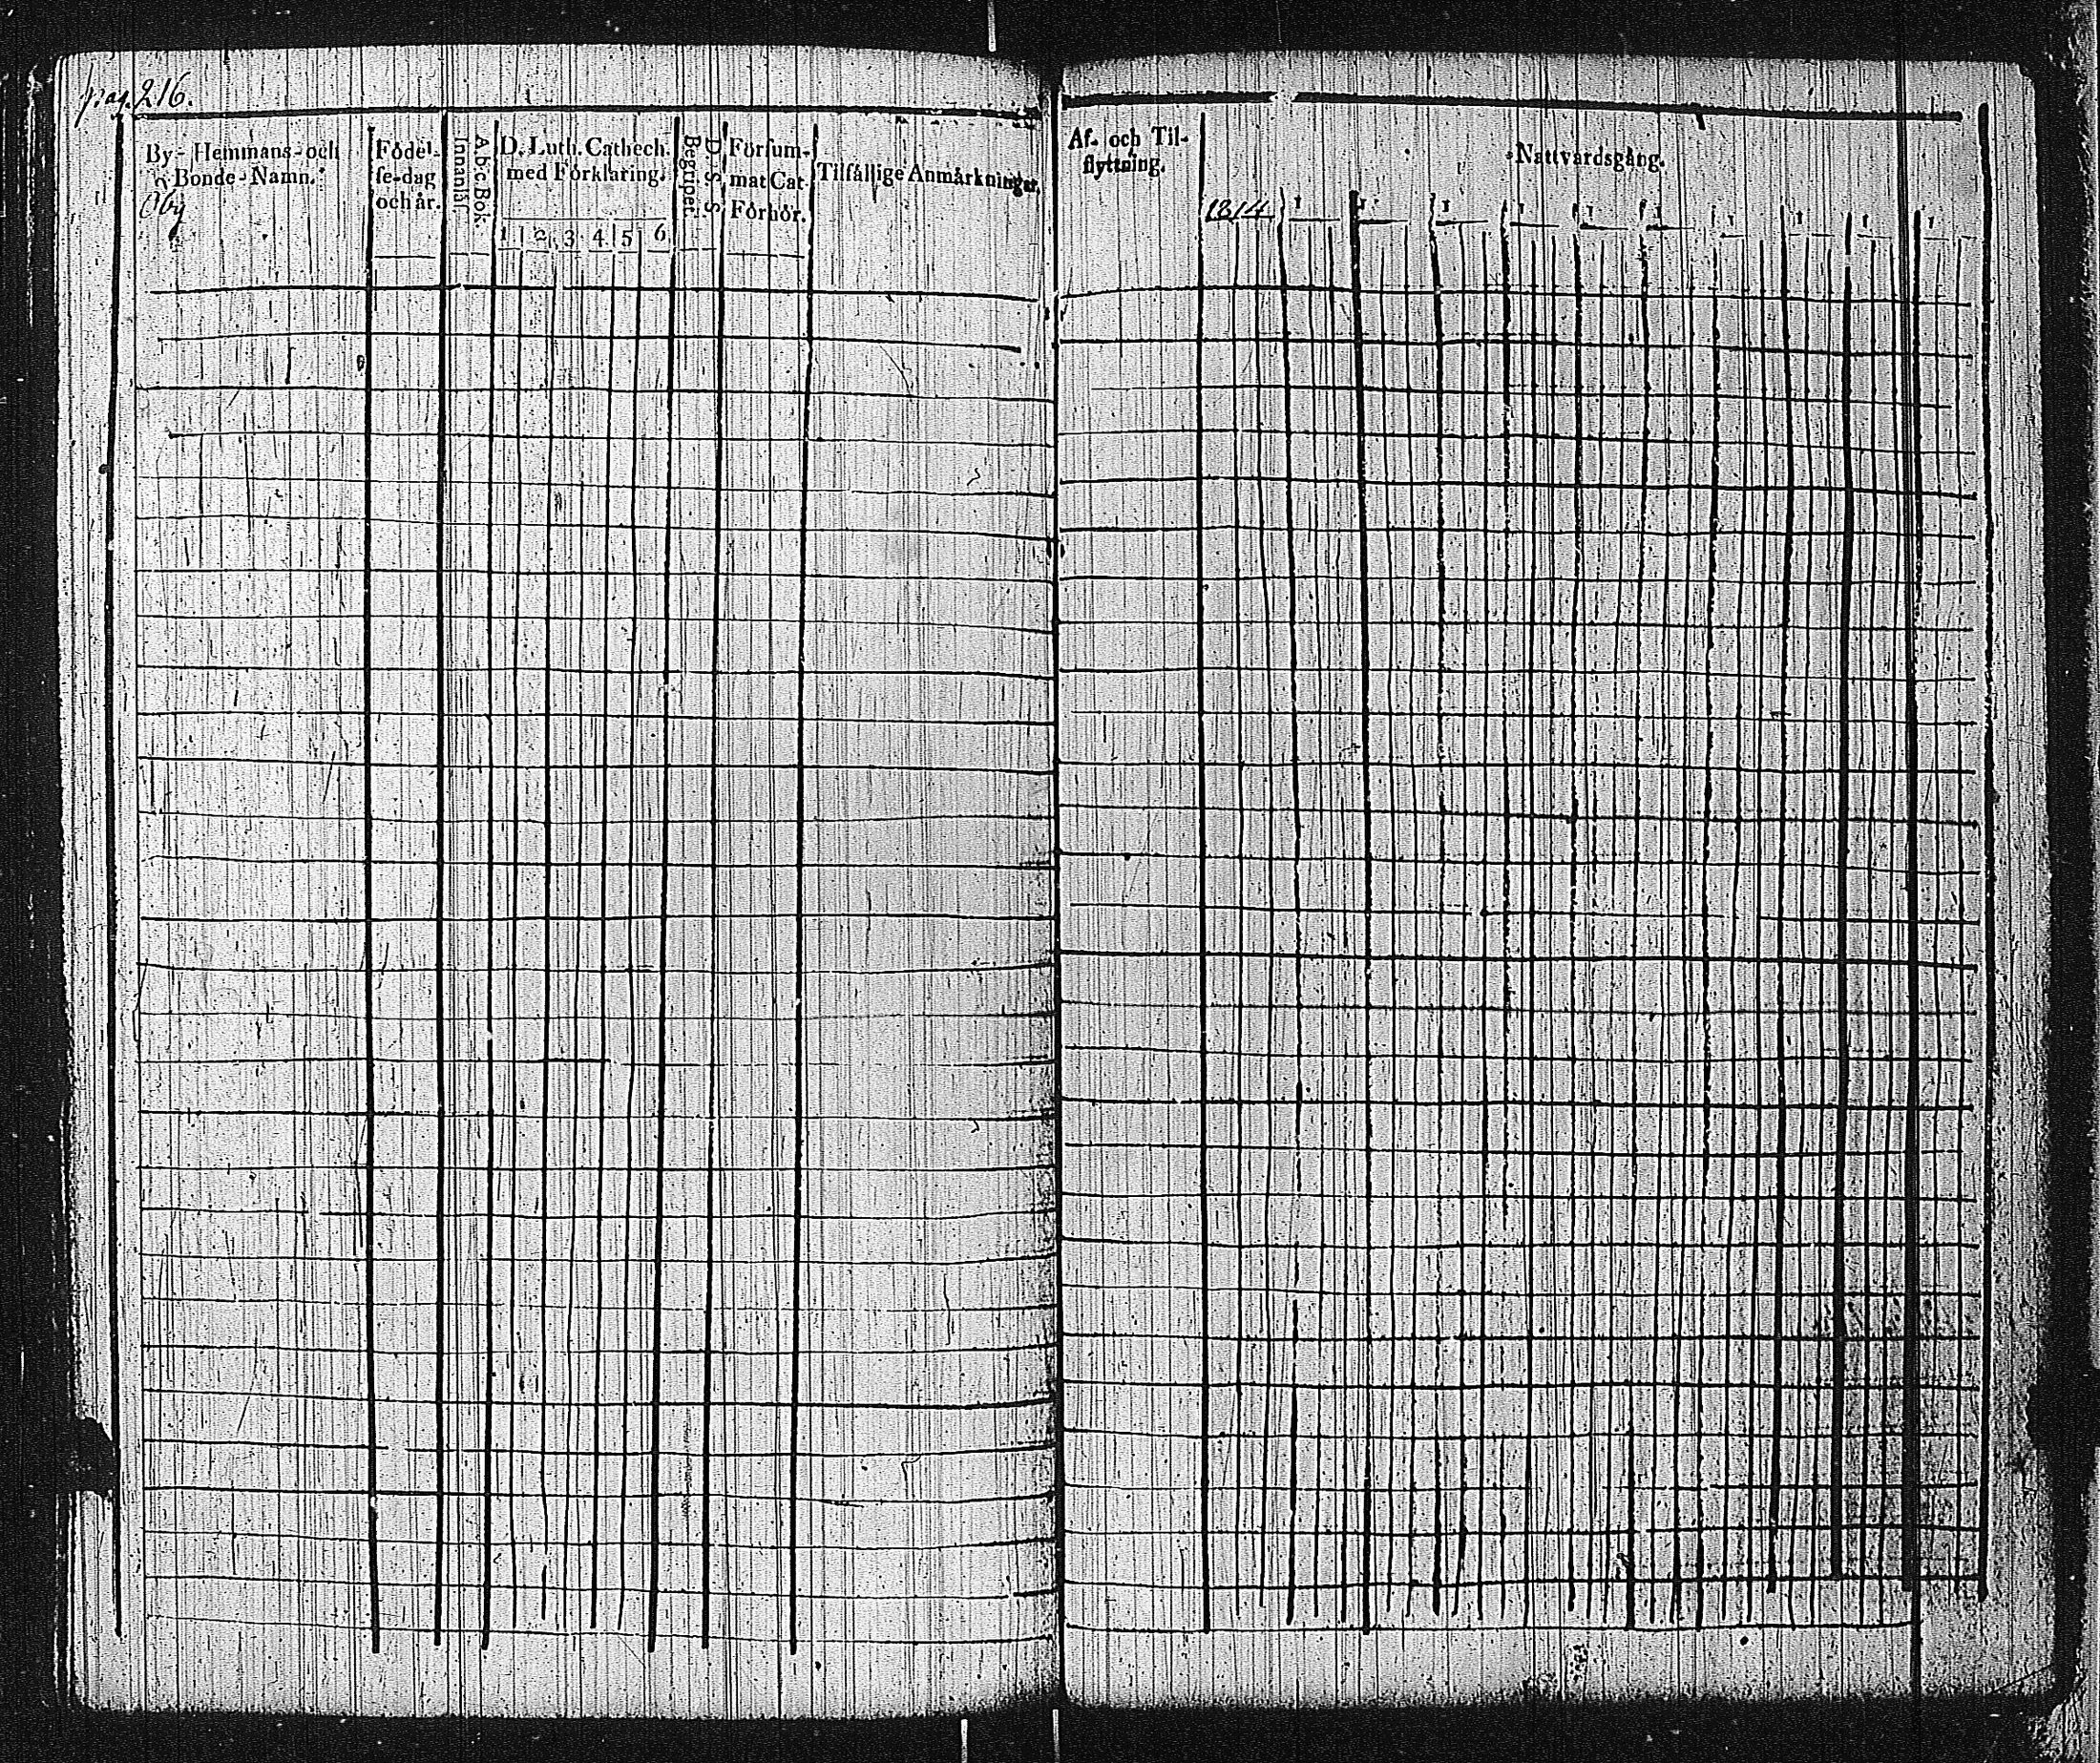 pag. 216.
By- Hemmans- och
Bonde-Namn.
Öby
Födel-
se-dag
och år.
A.b.c Bok.
Innanläs
D. Luth. Cathech.
med Förklaring.
1 2 3 4 5 6
D. S. S.
Begripet.
Försum-
mat Cat.
Förhör.
Tilfällige Anmärkningar.
Af- och Til-
flyttning.
Nattvardsgång.
1814 1 1 1 1 1 1 1 1 1 1